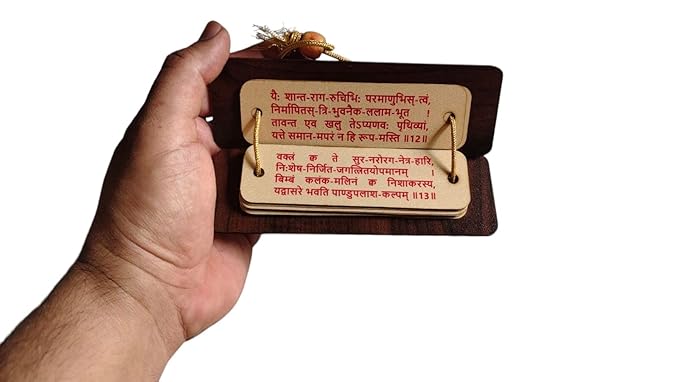 यैः शान्त-राग-रुचिभिः परमाणुभिस्-त्वं,
निर्मापितस्-त्रि-भुवनैक-ललाम-भूत ।
तावन्त एव खलु तेऽप्यणवः पृथिव्यां,
यत्ते समान-मपरं न हि रूप-मस्ति ॥12॥
वक्त्रं क्व ते सुर-नरोरग-नेत्र-हारि,
निःशेष-निर्जित-जगत्त्रितयोपमानम् ।
बिम्बं कलंक-मलिनं क्व निशाकरस्य,
यद्वासरे भवति पाण्डुपलाश-कल्पम् ॥13॥